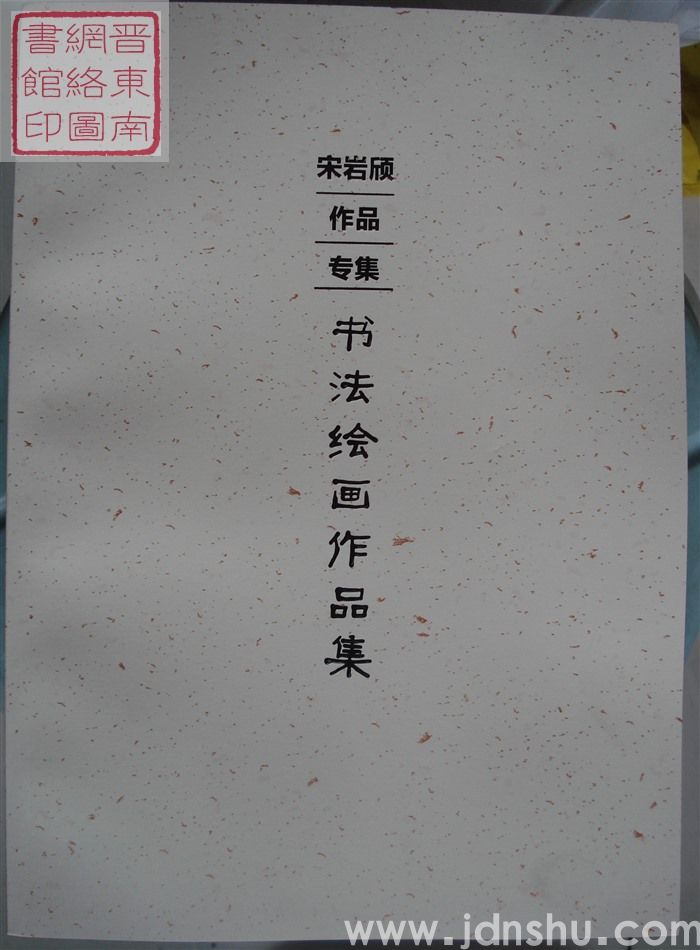 晋東南
網絡圖
書館印
宋岩颀
作品
专集
书法绘画作品集
www.jdnshu.com